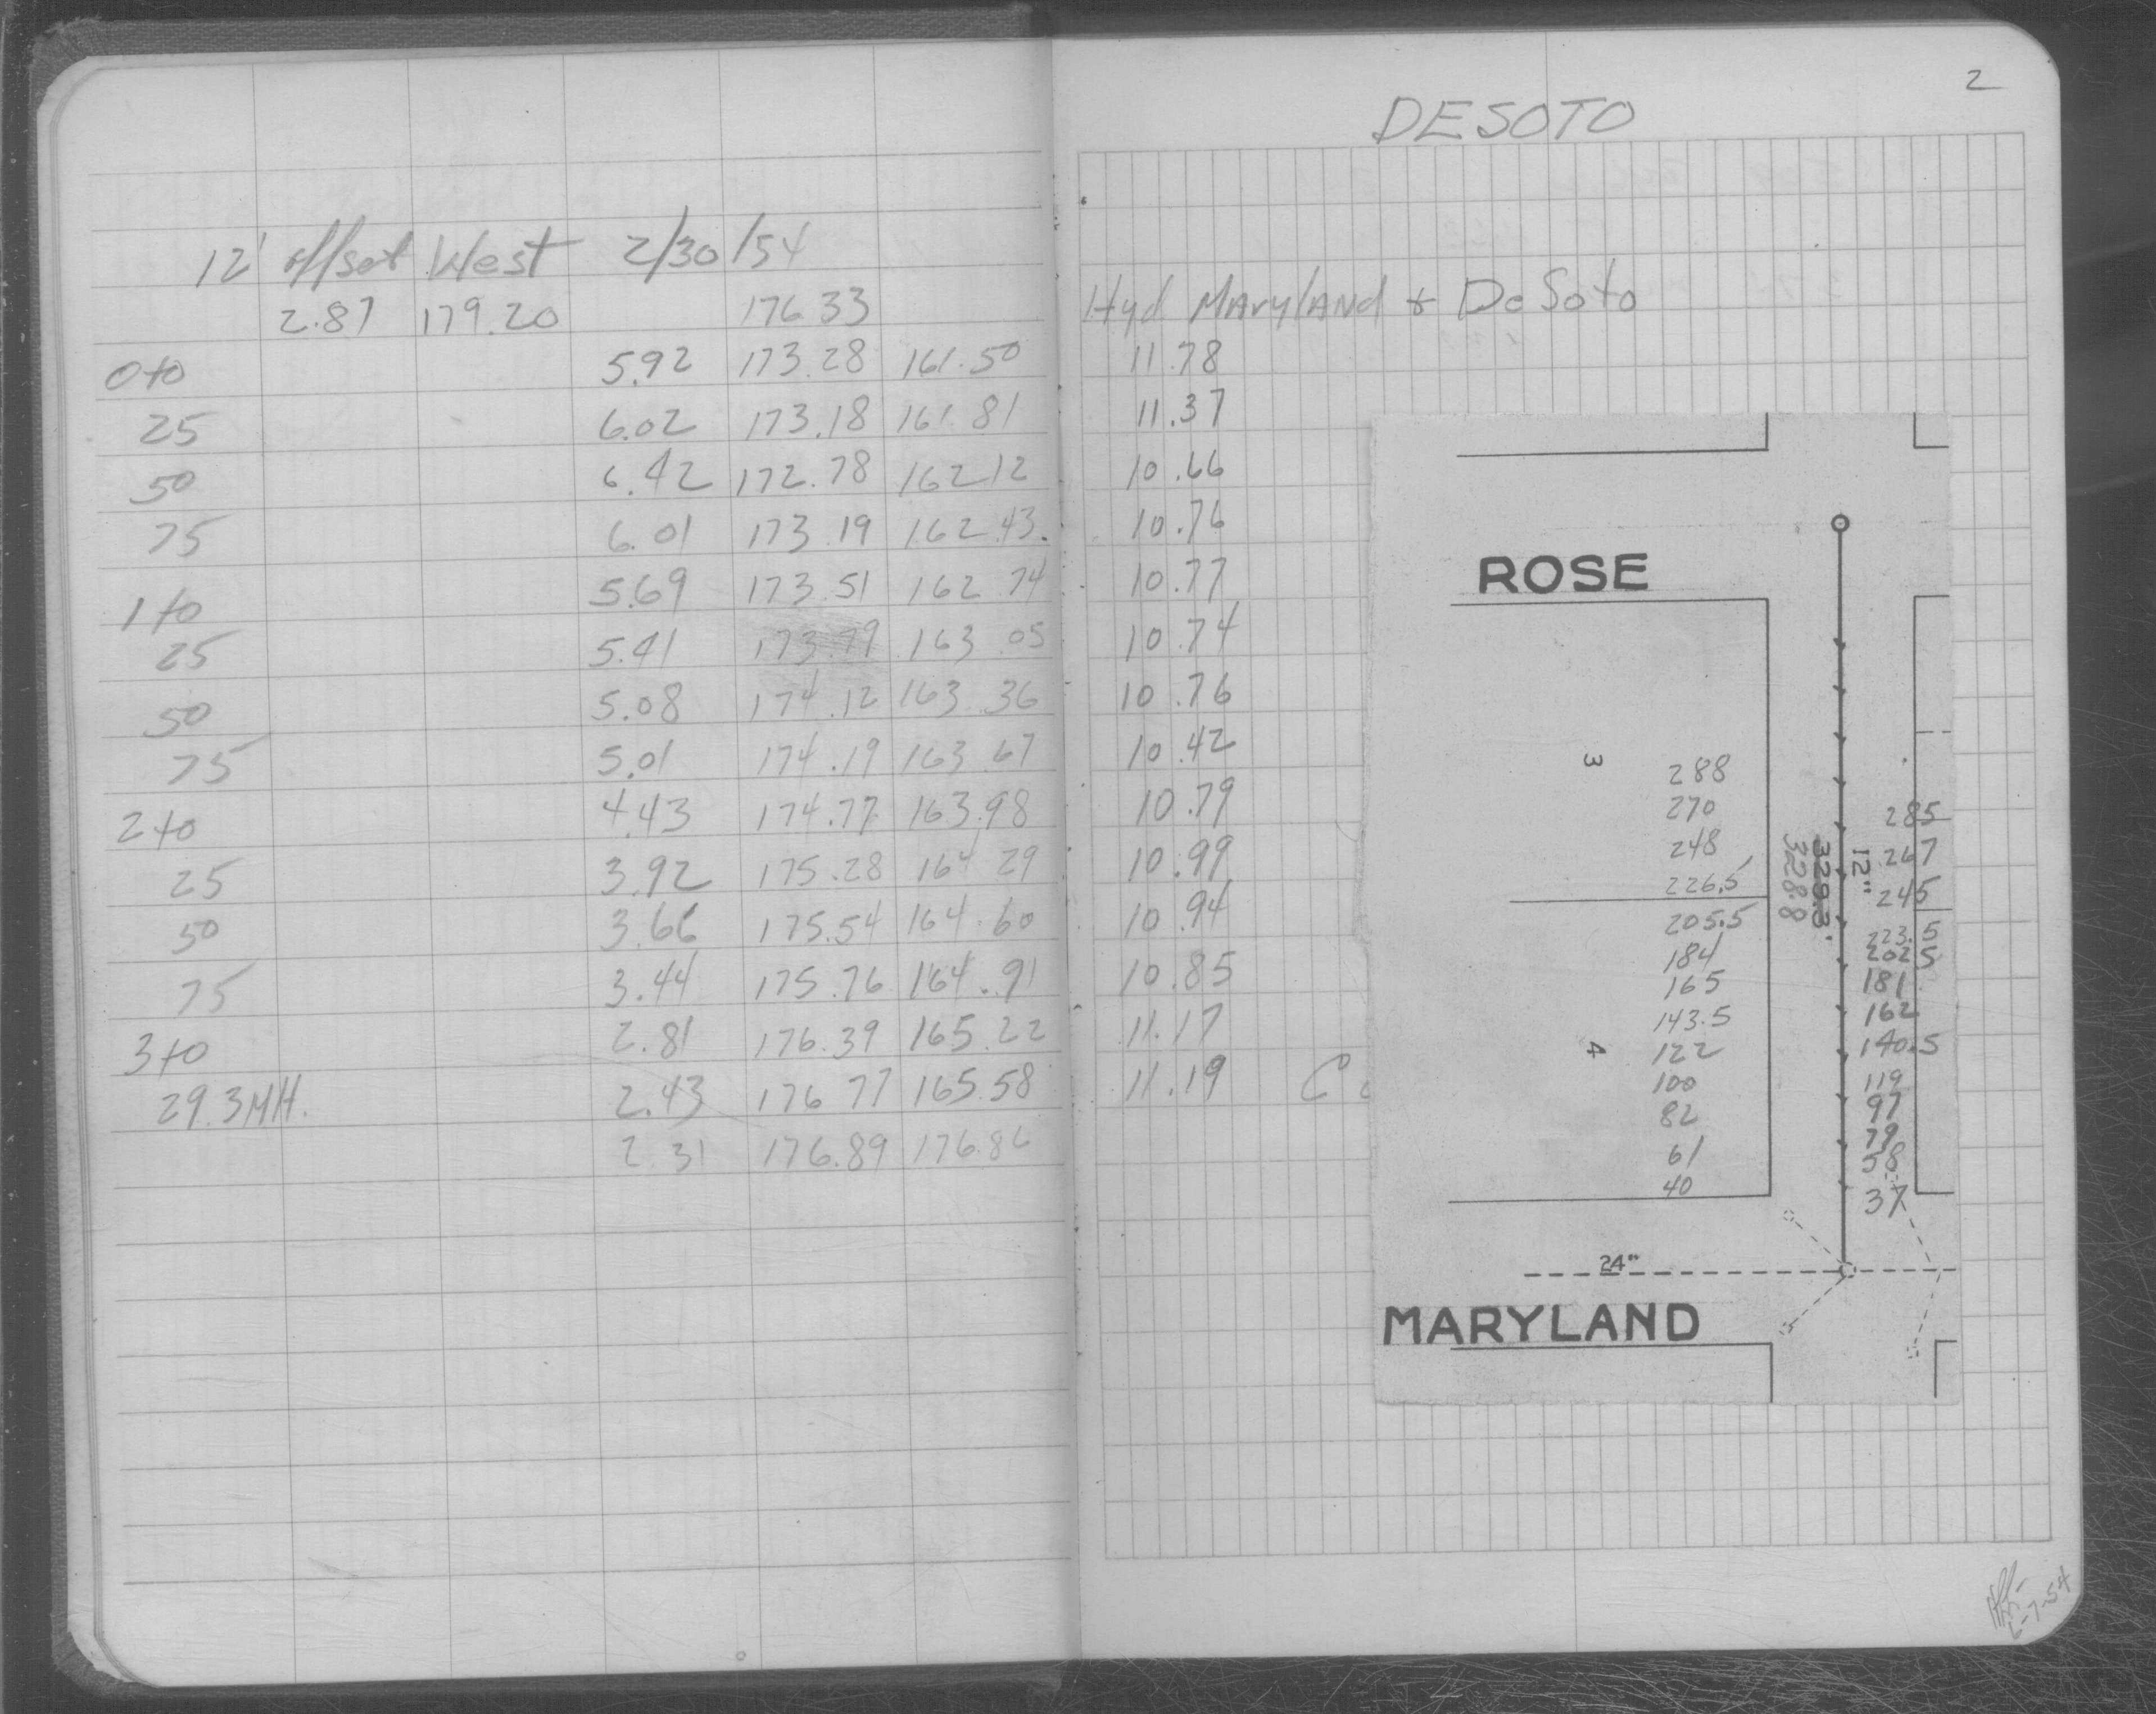 12' offset West 2/30/54
2.87 179.20 176.33
0+0 5.92 173.28 161.50
25 6.02 173.18 161.81
50 6.42 172.78 162 12
75 6.01 173.19 162.43.
1+0 5.69 173.51 162 74
25 5.41 173.79 163.05
50 5.08 174.12 163 36
75 5.01 174.19 163 67
2+0 4.43 174.77 163.98
25 3.92 175.28 164 29
50 3.66 175.54 164.60
75 3.44 175.76 164.91
3+0 2.81 176.39 165.22
29.3 MH. 2.43 176 77 165.58
2.31 176.89 176.86
2
DESOTO
Hyd Maryland + DeSoto
11.78
11.37
10.66
10.76
10.77
10.74
10.76
10.42
10.79
10.99
10.94
10.85
11.17
11.19 C
ROSE
3
288
270
248
226.5
205.5
184
165
143.5
4
122
100
82
61
40
329.3'
328.8
12"
285
267
245
223.5
202.5
181
162
140.5
119
97
79
58
37
24"
MARYLAND
6-7-54